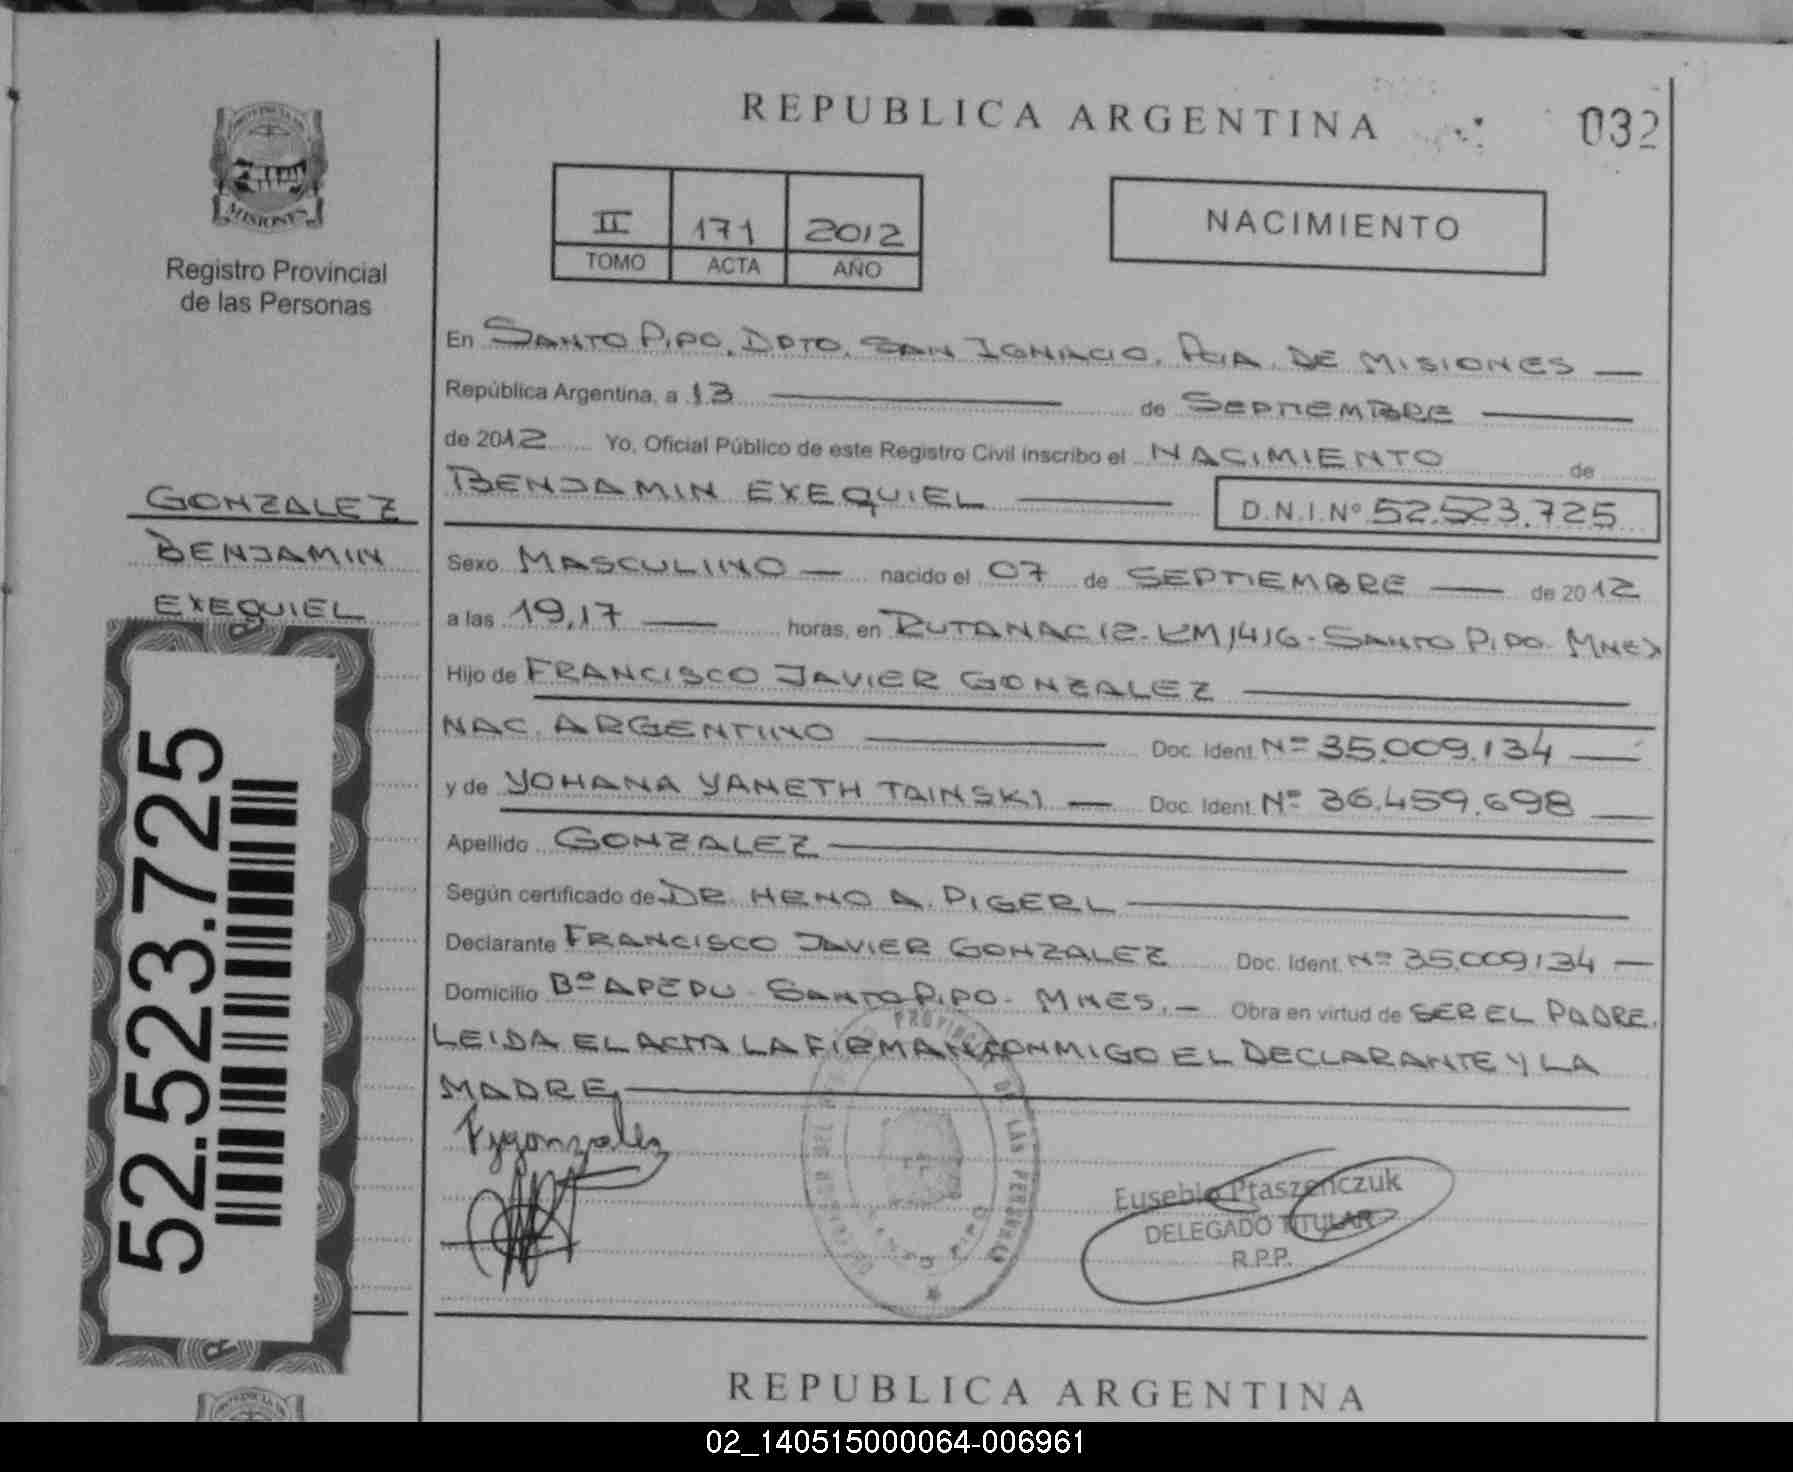 REPUBLICA ARGENTINA
032
MISIONES
Registro Provincial
de las Personas
II 171 2012
TOMO ACTA AÑO
NACIMIENTO
En SANTO PIPO, DPTO. SAN IGNACIO, PCIA. DE MISIONES
República Argentina, a 13 de SEPTIEMBRE
de 2012 Yo, Oficial Público de este Registro Civil inscribo el NACIMIENTO de
BENJAMIN EXEQUIEL D.N.I. Nº 52.523.725
GONZALEZ
BENJAMIN
EXEQUIEL
Sexo MASCULINO nacido el 07 de SEPTIEMBRE de 2012
a las 19,17 horas, en RUTA NAC 12 - KM 1416 - SANTO PIPO - MNES
Hijo de FRANCISCO JAVIER GONZALEZ
NAC. ARGENTINO Doc. Ident. Nº 35.009.134
y de YOHANA YANETH TAINSKI Doc. Ident. Nº 36.459.698
Apellido GONZALEZ
Según certificado de DR. HENO A. PIGERL
Declarante FRANCISCO JAVIER GONZALEZ Doc. Ident. Nº 35.009134
Domicilio Bº APEPU - SANTO PIPO - MNES. Obra en virtud de SER EL PADRE.
LEIDA EL ACTA LA FIRMAN CONMIGO EL DECLARANTE Y LA
MADRE
Fjgonzalez
52.523.725
DE LAS PERSONAS
Eusebio Ptaszenczuk
DELEGADO TITULAR
R.P.P.
REPUBLICA ARGENTINA
02_140515000064-006961